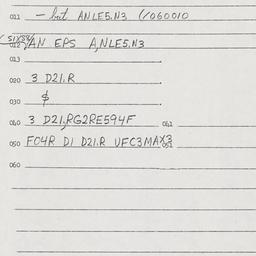 011 – bit ANLE5.N3 (/060010
012 AN EPS A,NLE5.N3
013
020 3 D21.R
030 $
040 3 D21,RG2RE594F 041
050 FO4R D1 D21.R UFC3MAX3 051
060